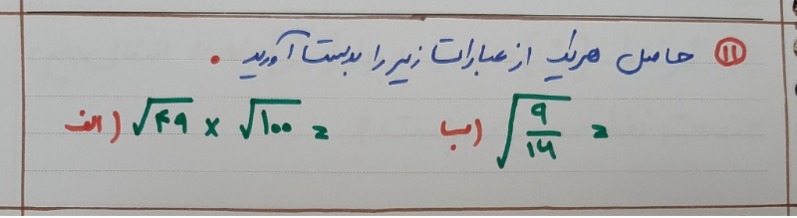 ۱۱ حاصل هریک از عبارات زیر را بدست آورید.
الف) √۴۹ × √۱۰۰ = ب) √۹/۱۶ =